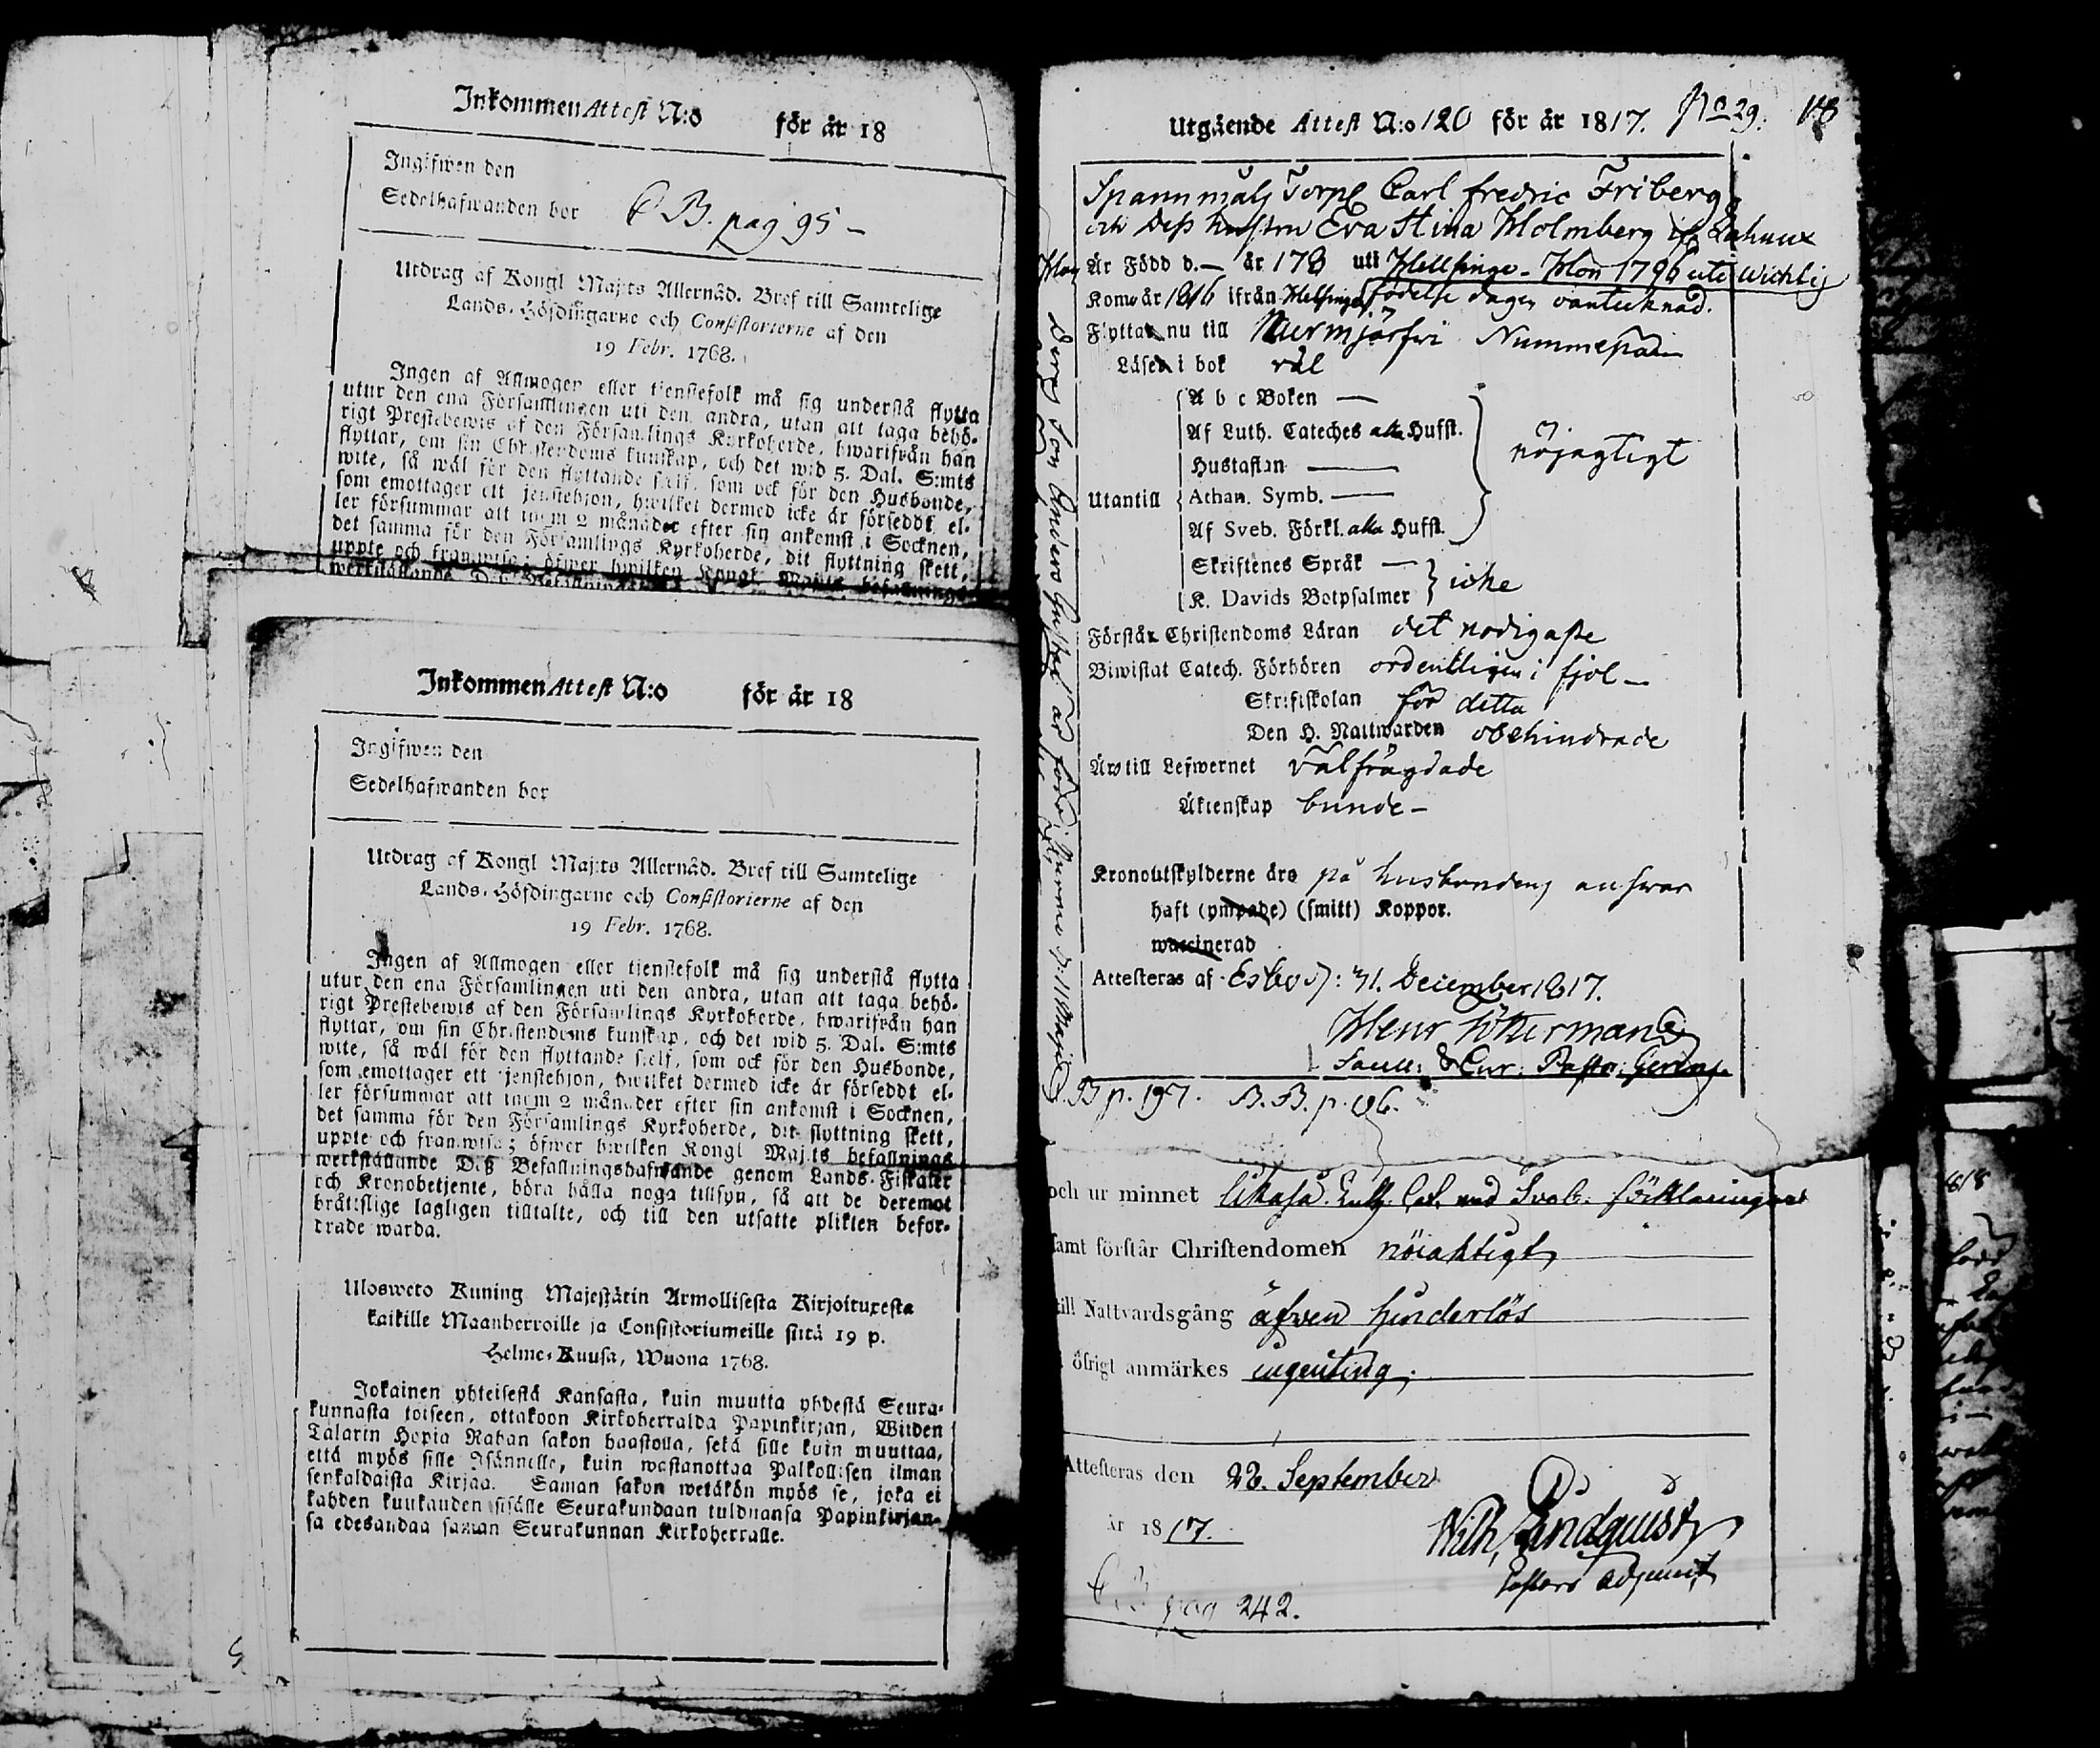 Inkommen Attest N:o för år 18
Ingifwen den
Sedelhafwanden bor C B. pag 95 –
Utdrag af Kongl Maj:ts Allernåd. Bref till Samtelige
Lands-Höfdingarne och Consistorierne af den
19 Febr. 1768.
Ingen af Allmogen eller tienstefolk må sig understå flytta
utur den ena Församlingen uti den andra, utan att taga behö-
rigt Prestebewis af den Församlings Kyrkoherde, hwarifrån han
flyttar, om sin Christendoms kunskap, och det wid 5. Dal. S:mts
wite, så wäl för den flyttande sielf, som ock för den Husbonde,
som emottager ett jenstehjon, hwilket dermed icke är förseddt el-
ler försummar att inom 2 månader efter sin ankomst i Socknen,
det samma för den Församlings Kyrkoherde, dit flyttning skett,
uppte och framwisa; öfwer hwilken Kongl. Maj:ts befallnings
Inkommen Attest N:o för år 18
Ingifwen den
Sedelhafwanden bor
Utdrag af Kongl Maj:ts Allernåd. Bref till Samtelige
Lands-Höfdingarne och Consistorierne af den
19 Febr. 1768.
Ingen af Allmogen eller tienstefolk må sig understå flytta
utur den ena Församlingen uti den andra, utan att taga behö-
rigt Prestebewis af den Församlings Kyrkoherde, hwarifrån han
flyttar, om sin Christendoms kunskap, och det wid 5. Dal. S:mts
wite, så wäl för den flyttande sielf, som ock för den Husbonde,
som emottager ett jenstehjon, hwilket dermed icke är förseddt el-
ler försummar att inom 2 månader efter sin ankomst i Socknen,
det samma för den Församlings Kyrkoherde, dit flyttning skett,
uppte och framwisa; öfwer hwilken Kongl Maj:ts befallnings
werkställande Deß Befallningshafwande genom Lands-Fiskaler
och Kronobetjente, böra hålla noga tillsyn, så att de deremot
bråttslige lagligen tilltalte, och till den utsatte plikten befor-
drade warda.
Ulosweto Kuning Majestätin Armollisesta Kirjoituxesta
kaikille Maanherroille ja Consistoriumeille siitä 19 p.
Helme-Kuusa, Wuona 1768.
Jokainen yhteisestä Kansasta, kuin muutta yhdestä Seura-
kunnasta toiseen, ottakoon Kirkoherralda Papinkirjan, Wiiden
Talarin Hopia Rahan sakon haastolla, sekä sille kuin muuttaa,
että myös sille Isännelle, kuin wastanottaa Palkollisen ilman
senkaldaista Kirjaa. Saman sakon wetäkön myös se, joka ei
kahden kuukauden sisälle Seurakundaan tulduansa Papinkirjan-
sa edesandaa saman Seurakunnan Kirkoherralle.
Utgående Attest N:o 120 för år 1817. No 29. 118
Spannmåls Torp Carl fredric Friberg
och Deß hustru Eva Stina Holmberg
Är Född d. – år 178 uti Hellsinge – Hon 1796 uti Wichtis
Kom år 1816 ifrån Helsinge födelse dagen oantecknad.
Flytta nu till Nurmjärfwi Nummepää
Läsa i bok väl
A b c Boken —
Af Luth. Cateches alla Hufst.
Hustaflan —
Utantill Athan. Symb. —
Af Sveb. Förkl. alla Hufst.
nöjagtigt
Skriftenes Språk —
K. Davids Botpsalmer icke
Förstår Christendoms Läran det nödigaste
Biwistat Catech. Förhören ordentligen i fjol –
Skriftskolan för detta
Den H. Nattwarden obehindrade
Äro till Lefwernet välfrägdade
Äktenskap bunde –
Kronoutskylderne äro på husbondens answar
haft (ympade) (smitt) Koppor.
waccinerad
Attesteras af Esbo d: 31. December 1817.
B p. 197. B. B. p. 186.
Deras son Anders Gustaf är född i
och ur minnet likaså Luth. Cat. med Sveb. förklaringar
samt förstår Christendomen nöiaktigt
till Nattvardsgång äfven hinderlös
öfrigt anmärkes ingenting.
Attesteras den 28. September
år 1817.
Wilh, Lindquist
Pastors Adjunct
pag 242.